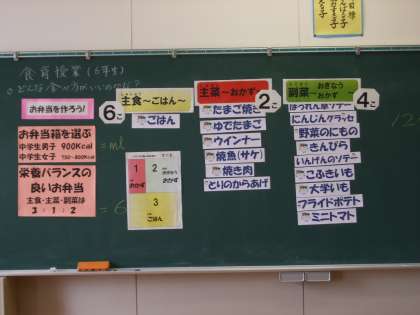 食育授業(6年生)
お弁当を作ろう!
お弁当箱を選ぶ
中学生男子 900Kcal
中学生女子 750~800Kcal
= ml
栄養バランスの
良いお弁当
主食・主菜・副菜は
3:1:2
= 6
6こ
主食~ごはん~
ごはん
1
おかず
2
おかず
3
ごはん
主菜~おかず~
2こ
たまご焼き
ゆでたまご
ウインナー
焼魚(サケ)
焼き肉
とりのからあげ
副菜~おぎなうおかず~
4こ
ほうれん草ソテー
にんじんグラッセ
野菜のにもの
きんぴら
いんげんのソテー
こふきいも
大学いも
フライドポテト
ミニトマト